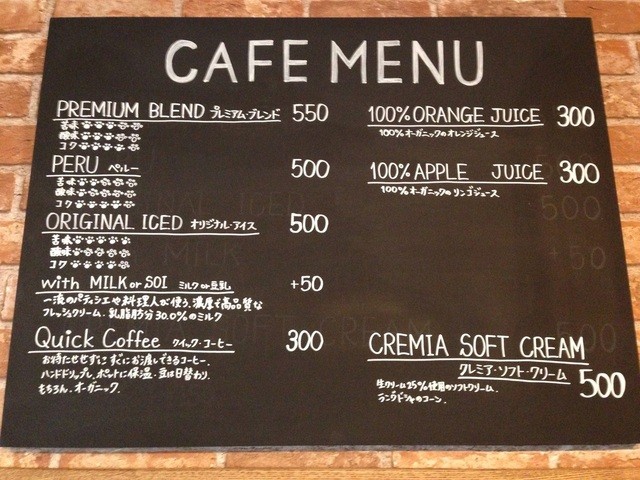 CAFE MENU
PREMIUM BLEND プレミアム・ブレンド 550
苦味
酸味
コク
PERU ペルー 500
苦味
酸味
コク
ORIGINAL ICED オリジナル・アイス 500
苦味
酸味
コク
with MILK or SOI ミルク or 豆乳 +50
一流のパティシエや料理人が使う、濃厚で高品質な
フレッシュクリーム。乳脂肪分30.0%のミルク
Quick Coffee クイック・コーヒー 300
お待たせせずにすぐにお渡しできるコーヒー。
ハンドドリップし、ポットに保温。豆は日替わり。
もちろん、オーガニック。
100% ORANGE JUICE 300
100%オーガニックのオレンジジュース
100% APPLE JUICE 300
100%オーガニックのリンゴジュース
CREMIA SOFT CREAM
クレミア・ソフト・クリーム 500
生クリーム25%使用のソフトクリーム。
ラングドシャのコーン。